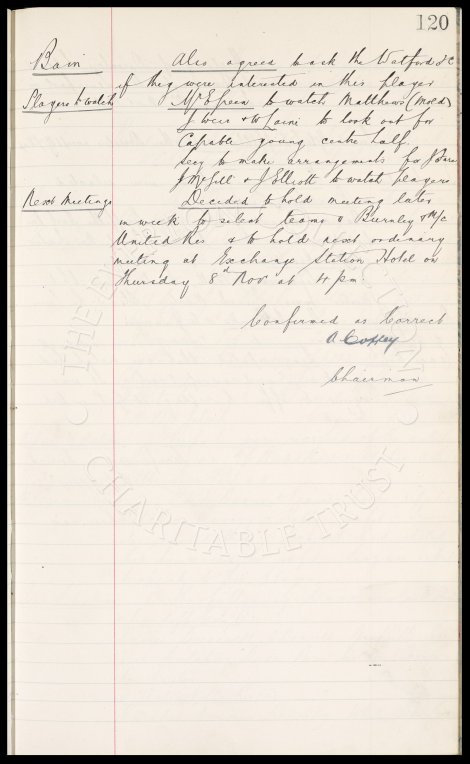 120
Bain Also agreed to ask the Watford F C
if they were interested in this player
Players to watch Mr Green to watch Matthews (Mold)
J Weir & W Laine to look out for
Capable young centre half.
Secy to make arrangements for J
J McGill & J Elliott to watch players
Next Meetings Decided to hold meeting later
in week to select teams v Burnley v M/c
United Res & to hold next ordinary
meeting at Exchange Station Hotel on
Thursday 8th Nov at 4 pm
Confirmed as Correct
A Coffey
Chairman
THE
CHARITABLE TRUST